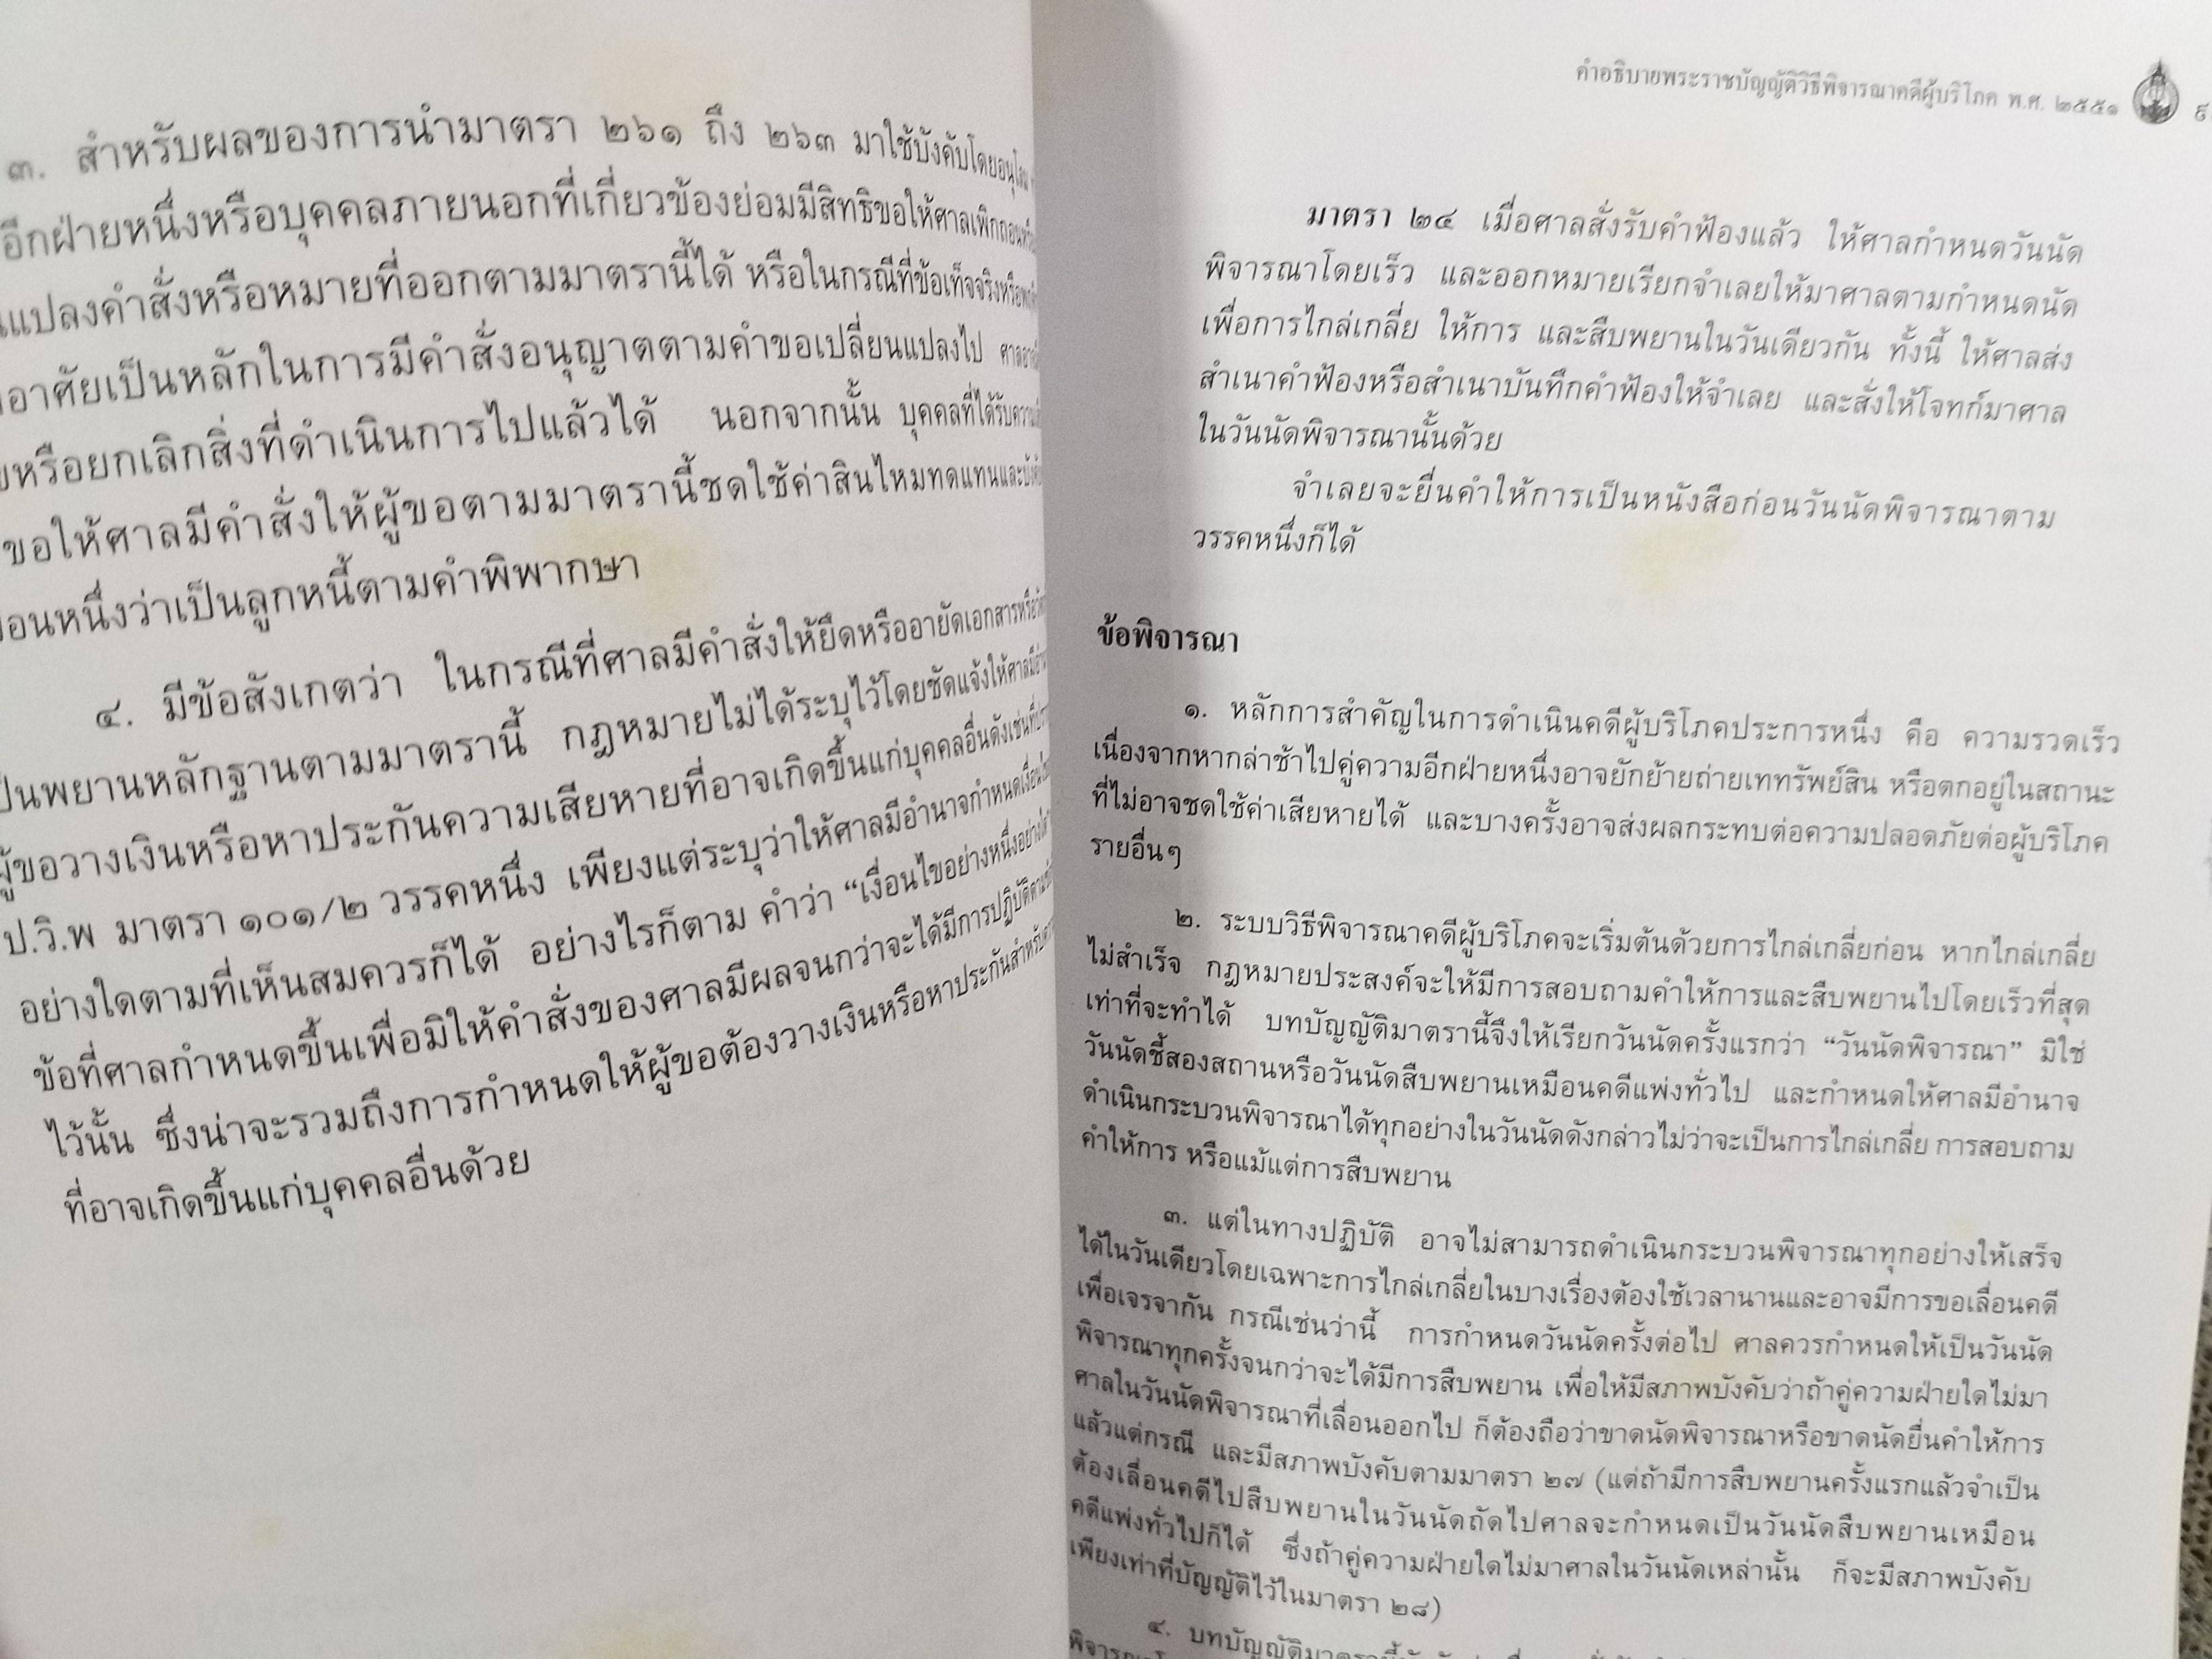 ๓. สำหรับผลของการนำมาตรา ๒๖๑ ถึง ๒๖๓ มาใช้บังคับโดยอนุโลม
อีกฝ่ายหนึ่งหรือบุคคลภายนอกที่เกี่ยวข้องย่อมมีสิทธิขอให้ศาลเพิกถอนหรือ
แปลงคำสั่งหรือหมายที่ออกตามมาตรานี้ได้ หรือในกรณีที่ข้อเท็จจริงหรือ
อาศัยเป็นหลักในการมีคำสั่งอนุญาตตามคำขอเปลี่ยนแปลงไป
หรือยกเลิกสิ่งที่ดำเนินการไปแล้วได้ นอกจากนั้น บุคคลที่ได้รับ
ขอให้ศาลมีคำสั่งให้ผู้ขอตามมาตรานี้ชดใช้ค่าสินไหมทดแทนและ
หนึ่งว่าเป็นลูกหนี้ตามคำพิพากษา
๔. มีข้อสังเกตว่า ในกรณีที่ศาลมีคำสั่งให้ยึดหรืออายัดเอกสารหรือ
เป็นพยานหลักฐานตามมาตรานี้ กฎหมายไม่ได้ระบุไว้โดยชัดแจ้งให้ศาล
ผู้ขอวางเงินหรือหาประกันความเสียหายที่อาจเกิดขึ้นแก่บุคคลอื่นดังเช่นที่
ป.วิ.พ มาตรา ๑๐๑/๒ วรรคหนึ่ง เพียงแต่ระบุว่าให้ศาลมีอำนาจกำหนดเงื่อนไข
อย่างใดตามที่เห็นสมควรก็ได้ อย่างไรก็ตาม คำว่า “เงื่อนไขอย่างหนึ่งอย่างใด”
ข้อที่ศาลกำหนดขึ้นเพื่อมิให้คำสั่งของศาลมีผลจนกว่าจะได้มีการปฏิบัติตาม
ไว้นั้น ซึ่งน่าจะรวมถึงการกำหนดให้ผู้ขอต้องวางเงินหรือหาประกันสำหรับ
ที่อาจเกิดขึ้นแก่บุคคลอื่นด้วย
คำอธิบายพระราชบัญญัติวิธีพิจารณาคดีผู้บริโภค พ.ศ. ๒๕๕๑
มาตรา ๒๔ เมื่อศาลสั่งรับคำฟ้องแล้ว ให้ศาลกำหนดวันนัด
พิจารณาโดยเร็ว และออกหมายเรียกจำเลยให้มาศาลตามกำหนดนัด
เพื่อการไกล่เกลี่ย ให้การ และสืบพยานในวันเดียวกัน ทั้งนี้ ให้ศาลส่ง
สำเนาคำฟ้องหรือสำเนาบันทึกคำฟ้องให้จำเลย และสั่งให้โจทก์มาศาล
ในวันนัดพิจารณานั้นด้วย
จำเลยจะยื่นคำให้การเป็นหนังสือก่อนวันนัดพิจารณาตาม
วรรคหนึ่งก็ได้
ข้อพิจารณา
๑. หลักการสำคัญในการดำเนินคดีผู้บริโภคประการหนึ่ง คือ ความรวดเร็ว
เนื่องจากหากล่าช้าไปคู่ความอีกฝ่ายหนึ่งอาจยักย้ายถ่ายเททรัพย์สิน หรือตกอยู่ในสถานะ
ที่ไม่อาจชดใช้ค่าเสียหายได้ และบางครั้งอาจส่งผลกระทบต่อความปลอดภัยต่อผู้บริโภค
รายอื่นๆ
๒. ระบบวิธีพิจารณาคดีผู้บริโภคจะเริ่มต้นด้วยการไกล่เกลี่ยก่อน หากไกล่เกลี่ย
ไม่สำเร็จ กฎหมายประสงค์จะให้มีการสอบถามคำให้การและสืบพยานไปโดยเร็วที่สุด
เท่าที่จะทำได้ บทบัญญัติมาตรานี้จึงให้เรียกวันนัดครั้งแรกว่า “วันนัดพิจารณา” มิใช่
วันนัดชี้สองสถานหรือวันนัดสืบพยานเหมือนคดีแพ่งทั่วไป และกำหนดให้ศาลมีอำนาจ
ดำเนินกระบวนพิจารณาได้ทุกอย่างในวันนัดดังกล่าวไม่ว่าจะเป็นการไกล่เกลี่ย การสอบถาม
คำให้การ หรือแม้แต่การสืบพยาน
๓. แต่ในทางปฏิบัติ อาจไม่สามารถดำเนินกระบวนพิจารณาทุกอย่างให้เสร็จ
ได้ในวันเดียวโดยเฉพาะการไกล่เกลี่ยในบางเรื่องต้องใช้เวลานานและอาจมีการขอเลื่อนคดี
เพื่อเจรจากัน กรณีเช่นว่านี้ การกำหนดวันนัดครั้งต่อไป ศาลควรกำหนดให้เป็นวันนัด
พิจารณาทุกครั้งจนกว่าจะได้มีการสืบพยาน เพื่อให้มีสภาพบังคับว่าถ้าคู่ความฝ่ายใดไม่มา
ศาลในวันนัดพิจารณาที่เลื่อนออกไป ก็ต้องถือว่าขาดนัดพิจารณาหรือขาดนัดยื่นคำให้การ
แล้วแต่กรณี และมีสภาพบังคับตามมาตรา ๒๗ (แต่ถ้ามีการสืบพยานครั้งแรกแล้วจำเป็น
ต้องเลื่อนคดีไปสืบพยานในวันนัดถัดไปศาลจะกำหนดเป็นวันนัดสืบพยานเหมือน
คดีแพ่งทั่วไปก็ได้ ซึ่งถ้าคู่ความฝ่ายใดไม่มาศาลในวันนัดเหล่านั้น ก็จะมีสภาพบังคับ
เพียงเท่าที่บัญญัติไว้ในมาตรา ๒๘)
๔. บทบัญญัติมาตรานี้